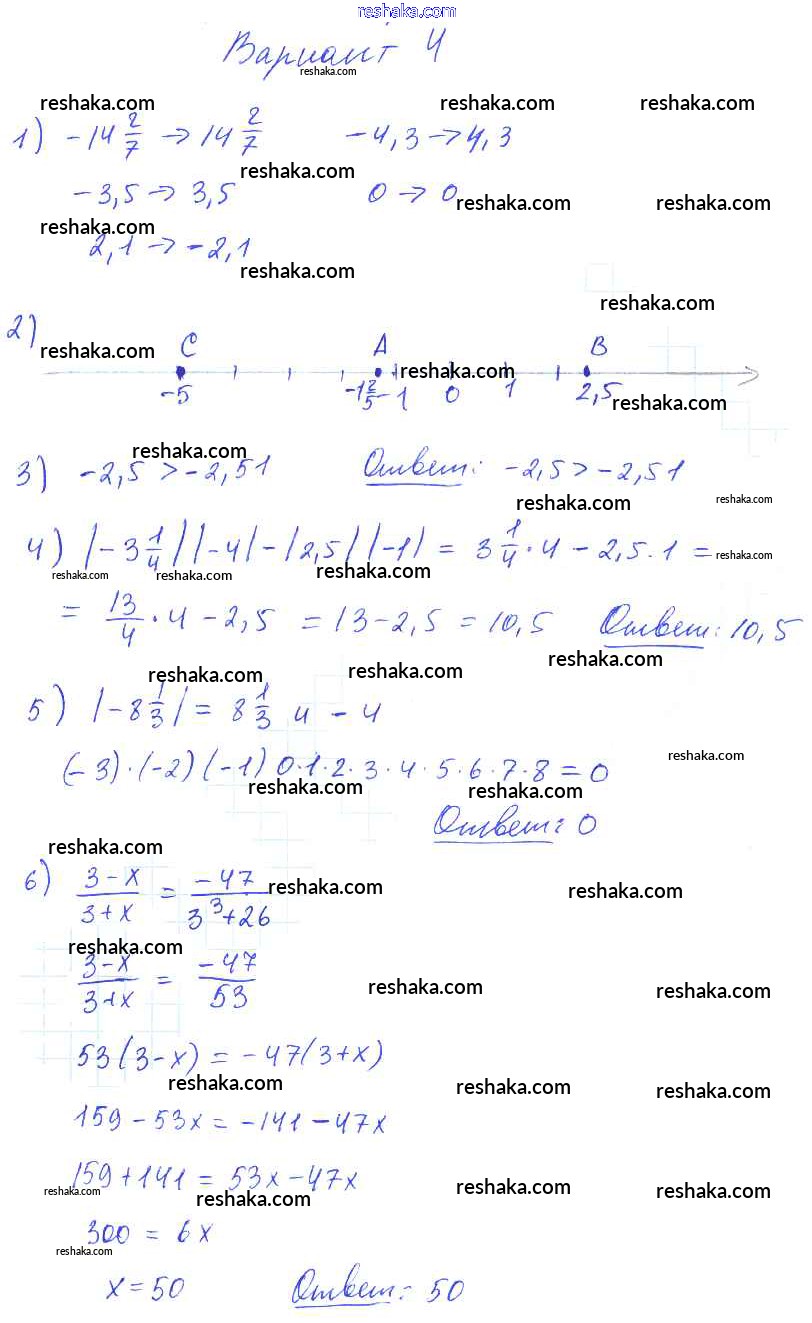 reshaka.com
Вариант 4
reshaka.com
reshaka.com reshaka.com reshaka.com
1) -14 2/7 → 14 2/7 -4,3 → 4,3
reshaka.com
-3,5 → 3,5 0 → 0
reshaka.com reshaka.com
reshaka.com
2,1 → -2,1
reshaka.com
reshaka.com
2)
reshaka.com C A B
reshaka.com
-5 -1 2/5 -1 0 1 2,5
reshaka.com
reshaka.com
3) -2,5 > -2,51 Ответ: -2,5 > -2,51
reshaka.com reshaka.com
4) |-3 1/4| |-4| - |2,5| |-1| = 3 1/4 · 4 - 2,5 · 1 =
reshaka.com
reshaka.com reshaka.com reshaka.com
= 13/4 · 4 - 2,5 = 13 - 2,5 = 10,5 Ответ: 10,5
reshaka.com reshaka.com reshaka.com
5) |-8 1/3| = 8 1/3 и -4
reshaka.com
(-3) · (-2) (-1) 0 · 1 · 2 · 3 · 4 · 5 · 6 · 7 · 8 = 0
reshaka.com reshaka.com
Ответ: 0
reshaka.com
6) 3-x/3+x = -47/3³+26
reshaka.com reshaka.com
reshaka.com
3-x/3+x = -47/53
reshaka.com reshaka.com
53(3-x) = -47(3+x)
reshaka.com reshaka.com reshaka.com
159 - 53x = -141 - 47x
159 + 141 = 53x - 47x
reshaka.com reshaka.com reshaka.com reshaka.com
300 = 6x
reshaka.com
x = 50 Ответ: 50